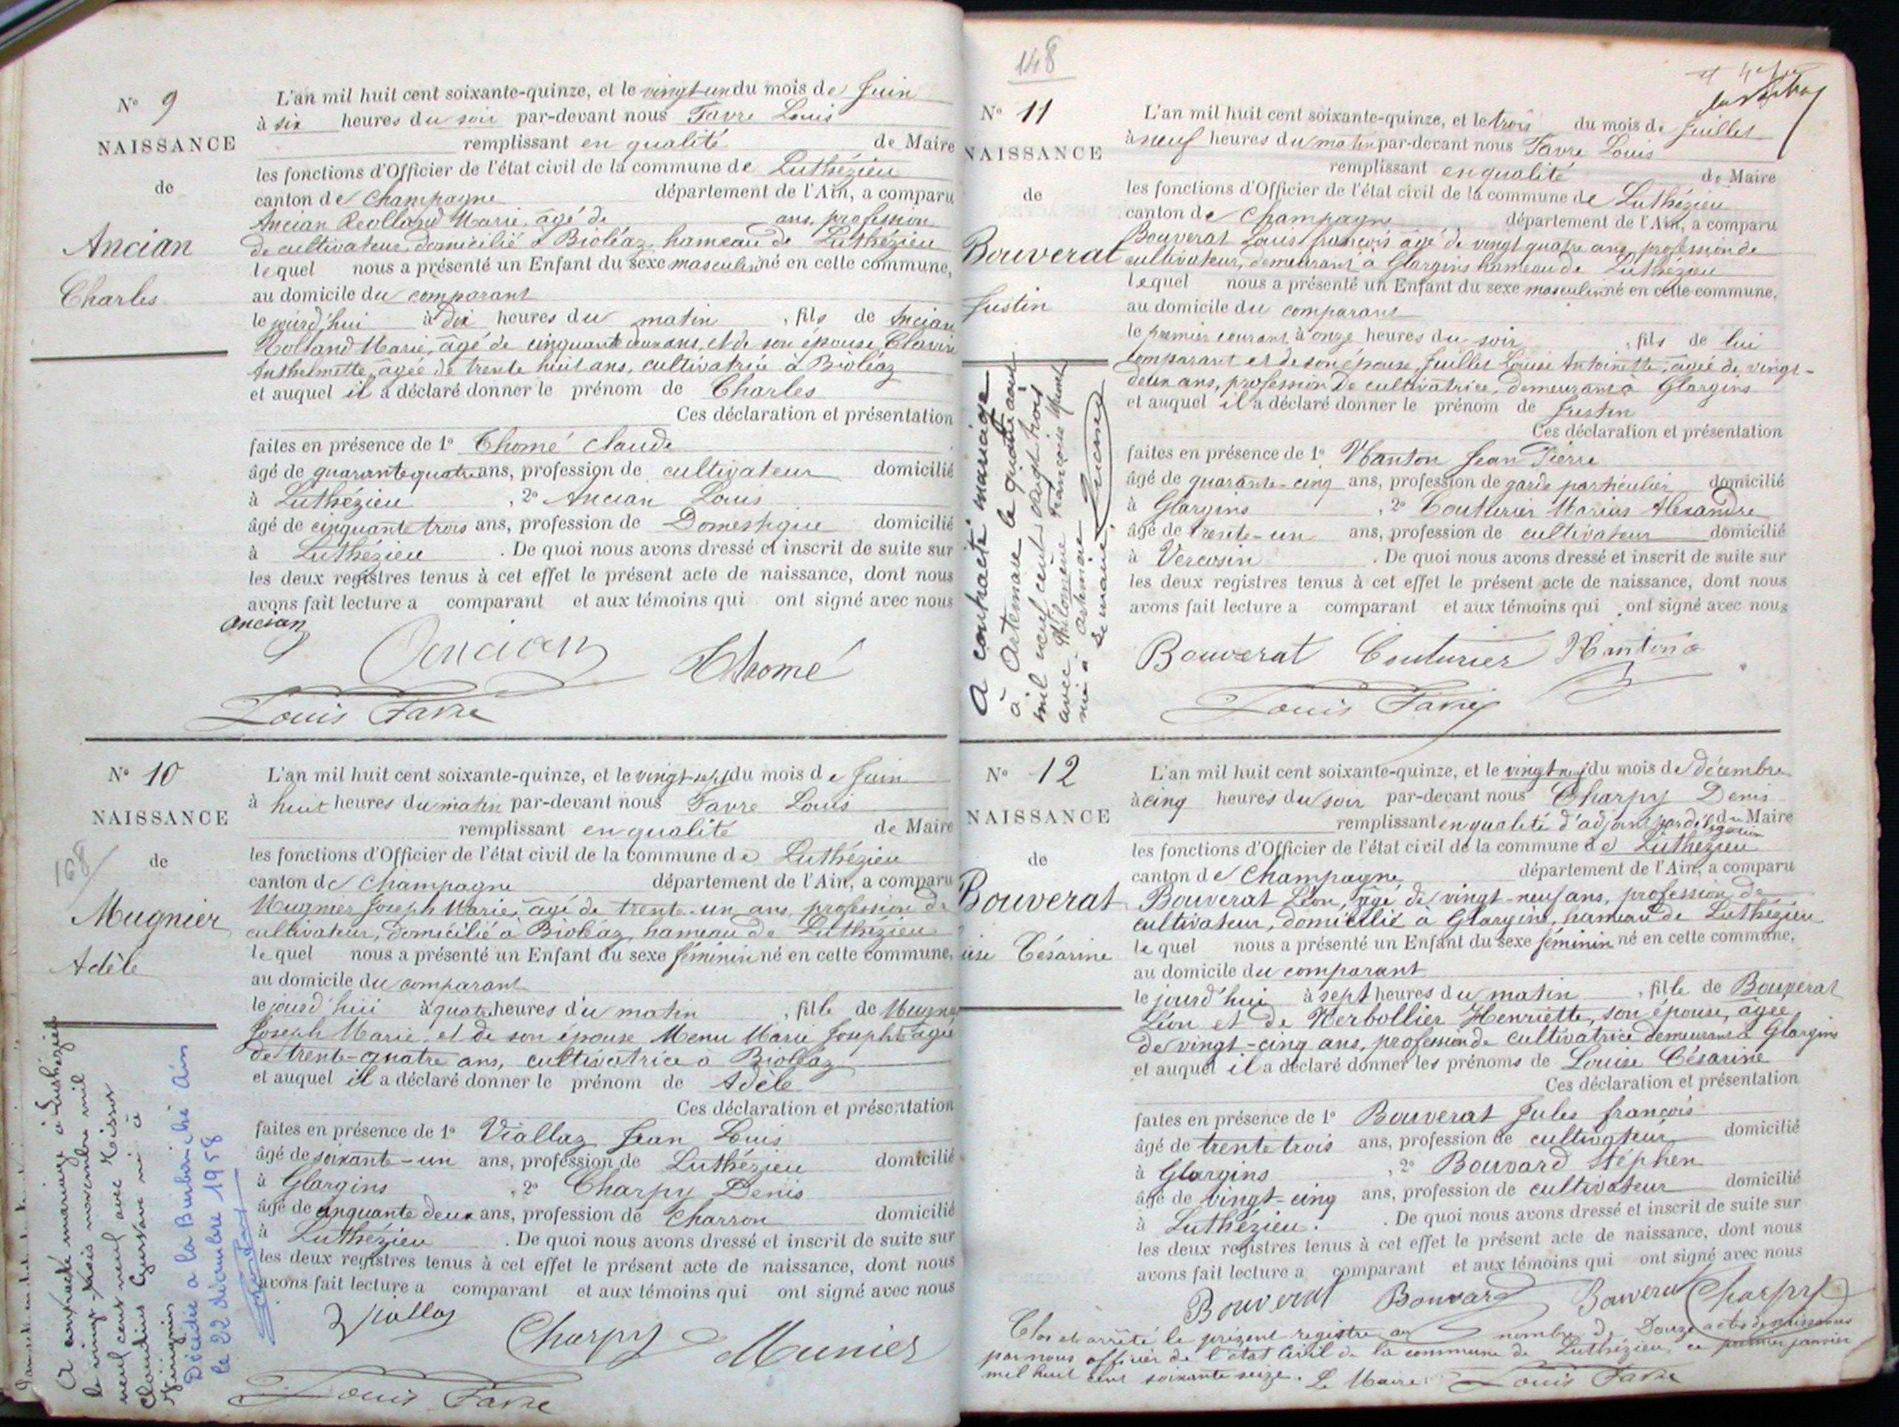 N° 9
NAISSANCE
de
Ancian
Charles
L'an mil huit cent soixante-quinze, et le vingt-un du mois de Juin
à six heures du soir par-devant nous Favre Louis
remplissant en qualité de Maire
les fonctions d'Officier de l'état civil de la commune de Luthézieu
canton de Champagne département de l'Ain, a comparu
Ancian Rolland Marie, âgé de ans, profession
de cultivateur, domicilié à Bioléaz, hameau de Luthézieu
lequel nous a présenté un Enfant du sexe masculin né en cette commune,
au domicile du comparant
le jourd'hui à dix heures du matin, fils de Ancian
Rolland Marie, âgé de cinquante deux ans, et de son épouse
Anthelmette, âgée de trente huit ans, cultivatrice à Bioléaz
et auquel il a déclaré donner le prénom de Charles
Ces déclaration et présentation
faites en présence de 1° Thomé Claude
âgé de quarante quatre ans, profession de cultivateur domicilié
à Luthézieu, 2° Ancian Louis
âgé de cinquante trois ans, profession de Domestique domicilié
à Luthézieu. De quoi nous avons dressé et inscrit de suite sur
les deux registres tenus à cet effet le présent acte de naissance, dont nous
avons fait lecture a comparant et aux témoins qui ont signé avec nous
Ancian
Ancian Thomé
Louis Favre
N° 10
NAISSANCE
de
168
Mugnier
Adèle
L'an mil huit cent soixante-quinze, et le vingt-sept du mois de Juin
à huit heures du matin par-devant nous Favre Louis
remplissant en qualité de Maire
les fonctions d'Officier de l'état civil de la commune de Luthézieu
canton de Champagne département de l'Ain, a comparu
Mugnier Joseph Marie, âgé de trente-un ans, profession de
cultivateur, domicilié à Bioléaz, hameau de Luthézieu
lequel nous a présenté un Enfant du sexe féminin né en cette commune,
au domicile du comparant
le jourd'hui à quatre heures du matin, fille de Mugnier
Joseph Marie et de son épouse Menu Marie Josephte âgée
de trente-quatre ans, cultivatrice à Bioléaz
et auquel il a déclaré donner le prénom de Adèle
Ces déclaration et présentation
faites en présence de 1° Viallaz Jean Louis
âgé de soixante-un ans, profession de Luthézieu domicilié
à Glargins, 2° Charpy Denis
âgé de cinquante deux ans, profession de Charron domicilié
à Luthézieu. De quoi nous avons dressé et inscrit de suite sur
les deux registres tenus à cet effet le présent acte de naissance, dont nous
avons fait lecture a comparant et aux témoins qui ont signé avec nous
Viallaz
Charpy Munier
Louis Favre
A contracté mariage à Luthézieu
le vingt trois novembre mil
neuf cent neuf avec
Claudius né à
Décédée à la Burbanche Ain
le 22 décembre 1958
148
N° 11
NAISSANCE
de
Bouverat
Justin
L'an mil huit cent soixante-quinze, et le trois du mois de Juillet
à neuf heures du matin par-devant nous Favre Louis
remplissant en qualité de Maire
les fonctions d'Officier de l'état civil de la commune de Luthézieu
canton de Champagne département de l'Ain, a comparu
Bouverat Louis françois âgé de vingt quatre ans, profession de
cultivateur, demeurant à Glargins hameau de Luthézieu
lequel nous a présenté un Enfant du sexe masculin né en cette commune,
au domicile du comparant
le premier courant à onze heures du soir, fils de lui
comparant et de son épouse Juillet Louise Antoinette, âgée de vingt-
deux ans, profession de cultivatrice, demeurant à Glargins
et auquel il a déclaré donner le prénom de Justin
Ces déclaration et présentation
faites en présence de 1° Jean Pierre
âgé de quarante-cinq ans, profession de garde particulier domicilié
à Glargins, 2° Couturier Marius Alexandre
âgé de trente-un ans, profession de cultivateur domicilié
à Vercosin. De quoi nous avons dressé et inscrit de suite sur
les deux registres tenus à cet effet le présent acte de naissance, dont nous
avons fait lecture a comparant et aux témoins qui ont signé avec nous
Bouverat Couturier
Louis Favre
A contracté mariage
à Artemare le quatre août
mil neuf cent vingt trois
avec Philomène Françoise
née à
Le maire,
N° 12
NAISSANCE
de
Bouverat
Césarine
L'an mil huit cent soixante-quinze, et le vingt neuf du mois de décembre
à cinq heures du soir par-devant nous Charpy Denis
remplissant en qualité d'adjoint par délégation du Maire
les fonctions d'Officier de l'état civil de la commune de Luthézieu
canton de Champagne département de l'Ain, a comparu
Bouverat Léon, âgé de vingt-neuf ans, profession de
cultivateur, domicilié à Glargins, hameau de Luthézieu
lequel nous a présenté un Enfant du sexe féminin né en cette commune,
au domicile du comparant
le jourd'hui à sept heures du matin, fille de Bouverat
Léon et de Henriette, son épouse, âgée
de vingt-cinq ans, profession de cultivatrice demeurant à Glargins
et auquel il a déclaré donner les prénoms de Louise Césarine
Ces déclaration et présentation
faites en présence de 1° Bouverat Jules françois
âgé de trente trois ans, profession de cultivateur domicilié
à Glargins, 2° Bouvard Stéphen
âgé de vingt-cinq ans, profession de cultivateur domicilié
à Luthézieu. De quoi nous avons dressé et inscrit de suite sur
les deux registres tenus à cet effet le présent acte de naissance, dont nous
avons fait lecture a comparant et aux témoins qui ont signé avec nous
Bouverat Bouvard Bouverat Charpy
Clos et arrêté le présent registre au nombre de Douze actes de naissances
par nous officier de l'état civil de la commune de Luthézieu, ce premier janvier
mil huit cent soixante seize. Le Maire Louis Favre